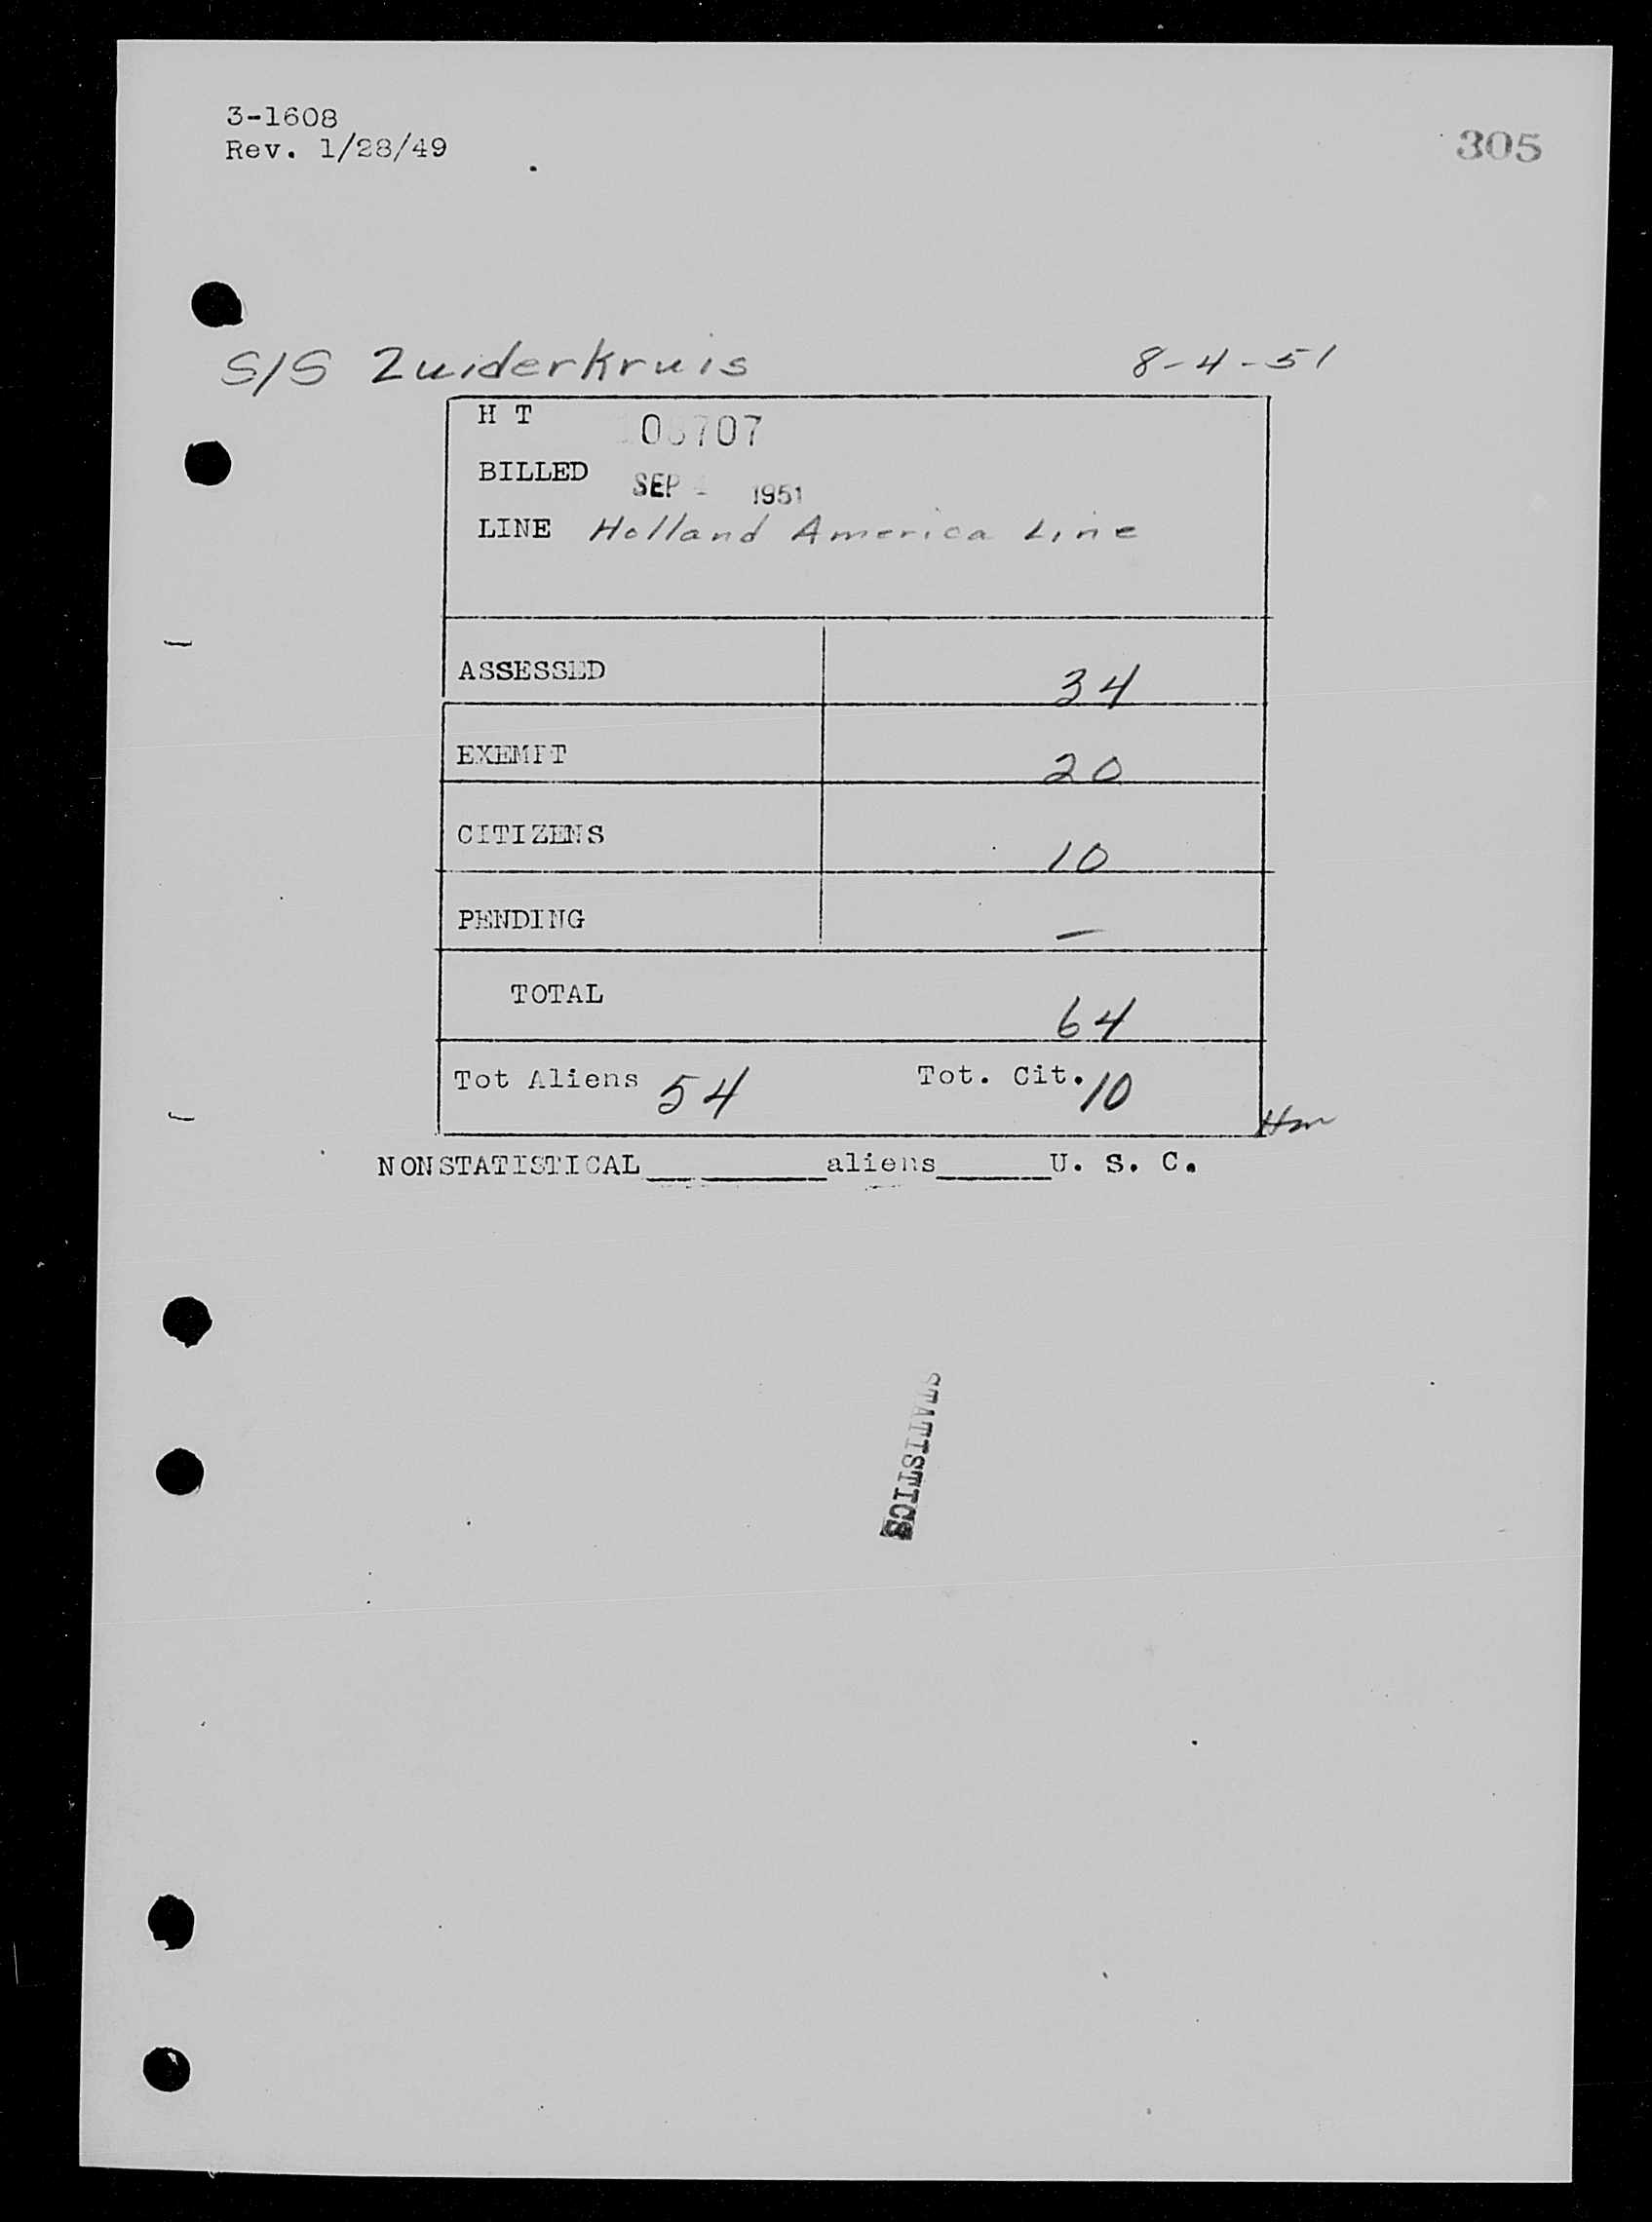 3-1608
Rev. 1/28/49
305
S/S Zuiderkruis 8-4-51
H T
BILLED SEP 1951
LINE Holland America Line
ASSESSED 34
EXEMPT 20
CITIZENS 10
PENDING —
TOTAL 64
Tot Aliens 54 Tot. Cit. 10
Hm
NONSTATISTICAL__________aliens______U. S. C.
STATISTICS